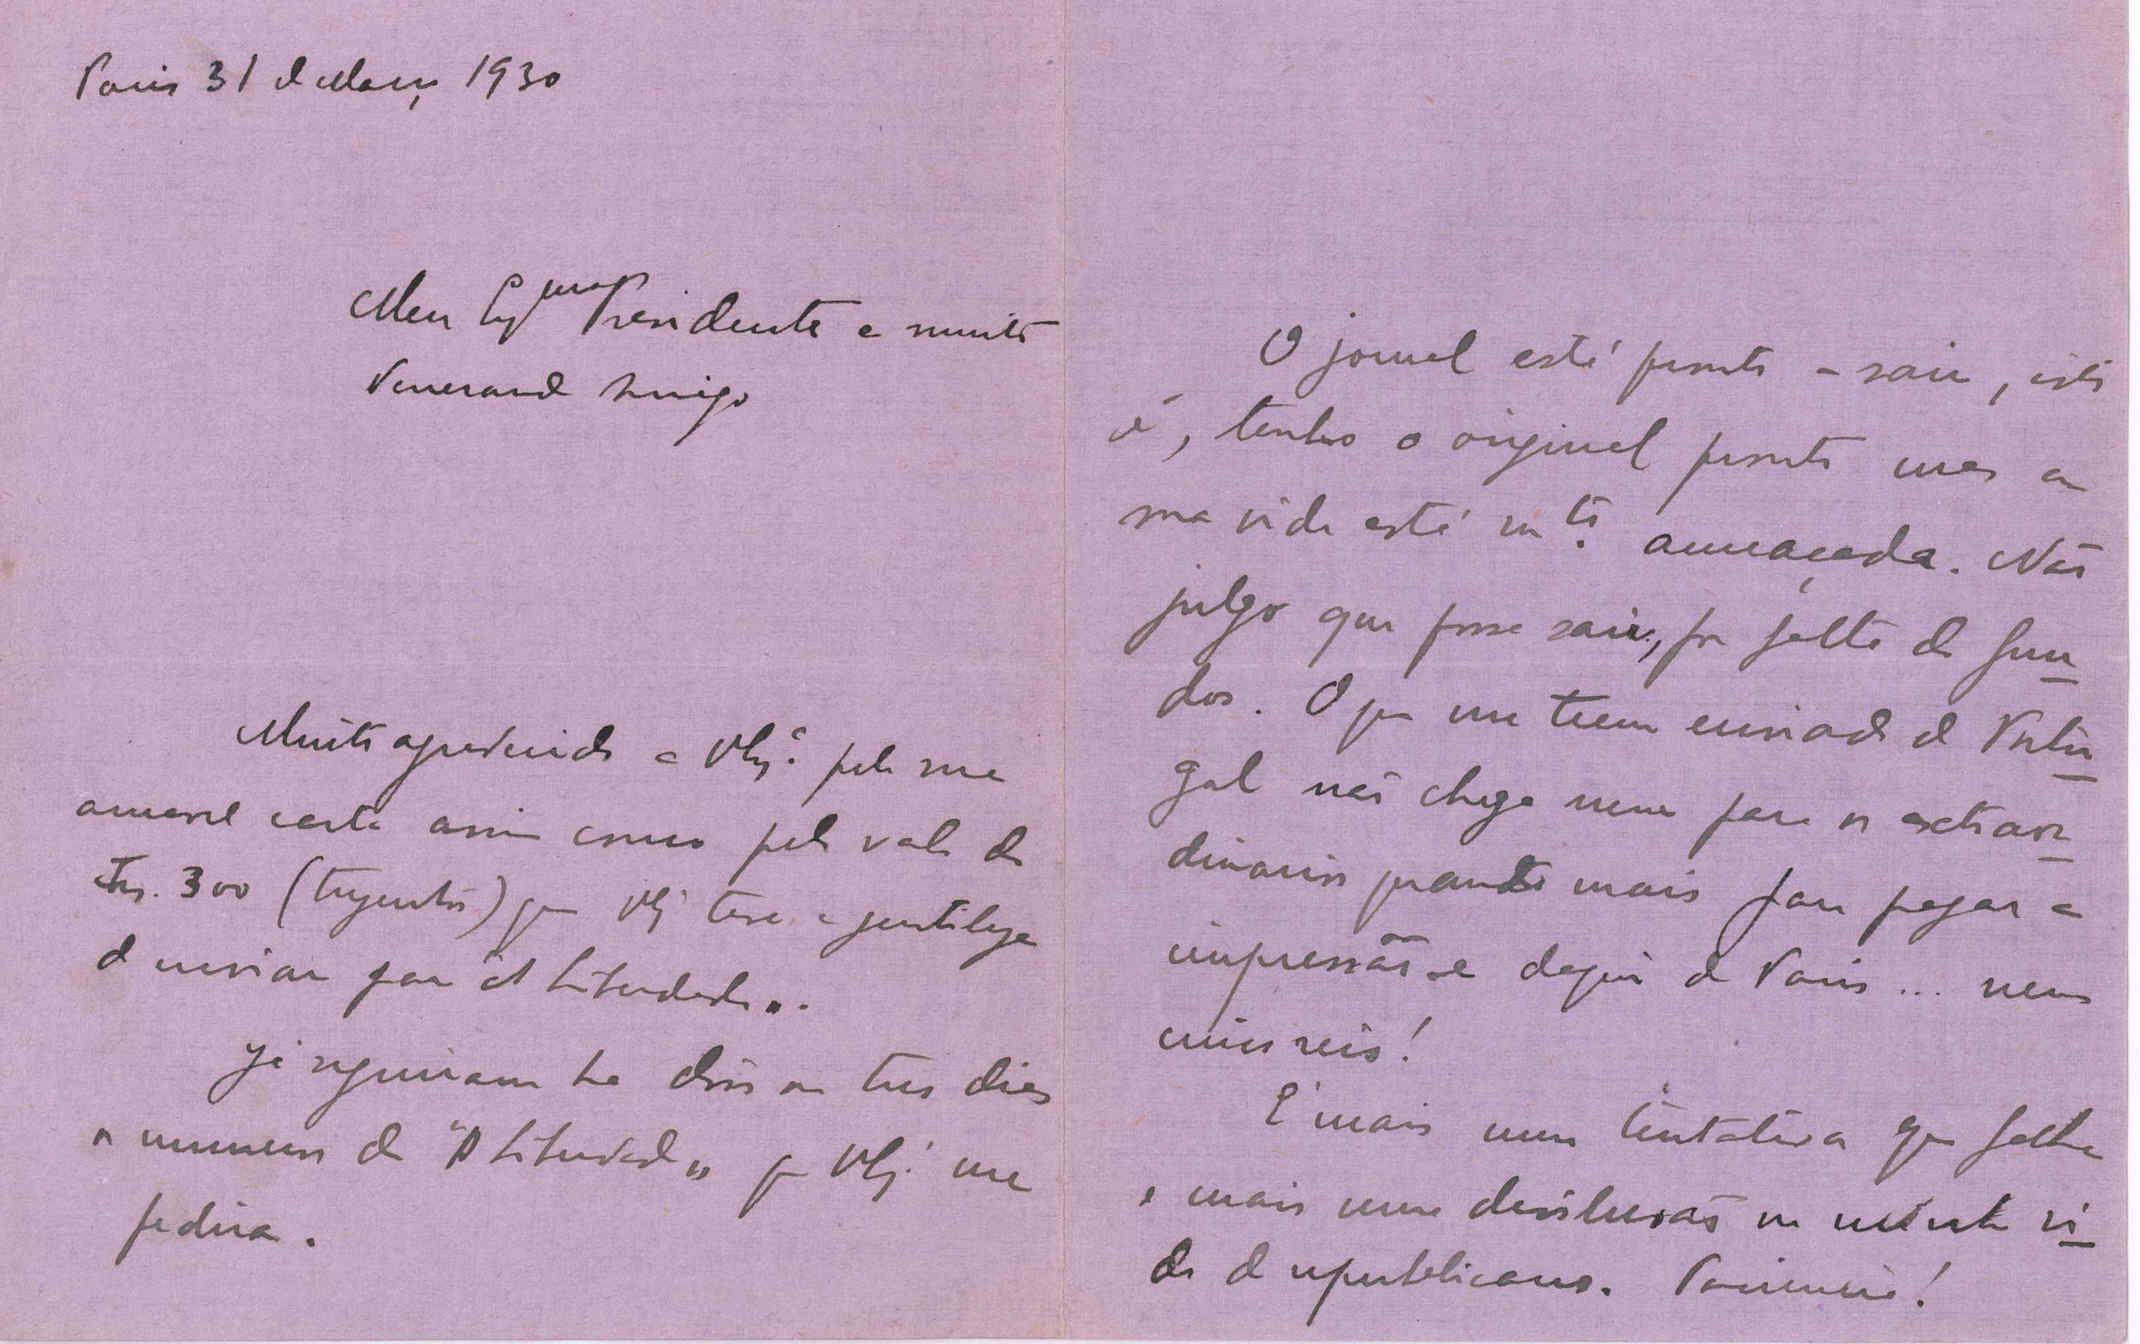 Paris 31 de Março 1930
Meu Exmo Presidente e muito
Venerando Amigo
Muito agradecido a V Exª pela sua
amavel carta assim como pelo vale de
Frs. 300 (trezentos) que V Ex teve a gentileza
de enviar para "A Liberdade".
Já seguiram ha dois ou tres dias
os numeros da "A Liberdade" que V Ex me
pedira.
O jornal está pronto a sair, isto
é, tenho o original pronto mas a
sua vida está mtº ameaçada. Não
julgo que possa sair, por falta de fun-
dos. O que me teem enviado de Portu-
gal não chega nem para os extraor-
dinarios quanto mais para pagar a
impressão e daqui de Paris... nem
cinco reis!
É mais uma tentativa que falha
e mais uma desilusão na minha vi-
da de republicano. Paciencia!